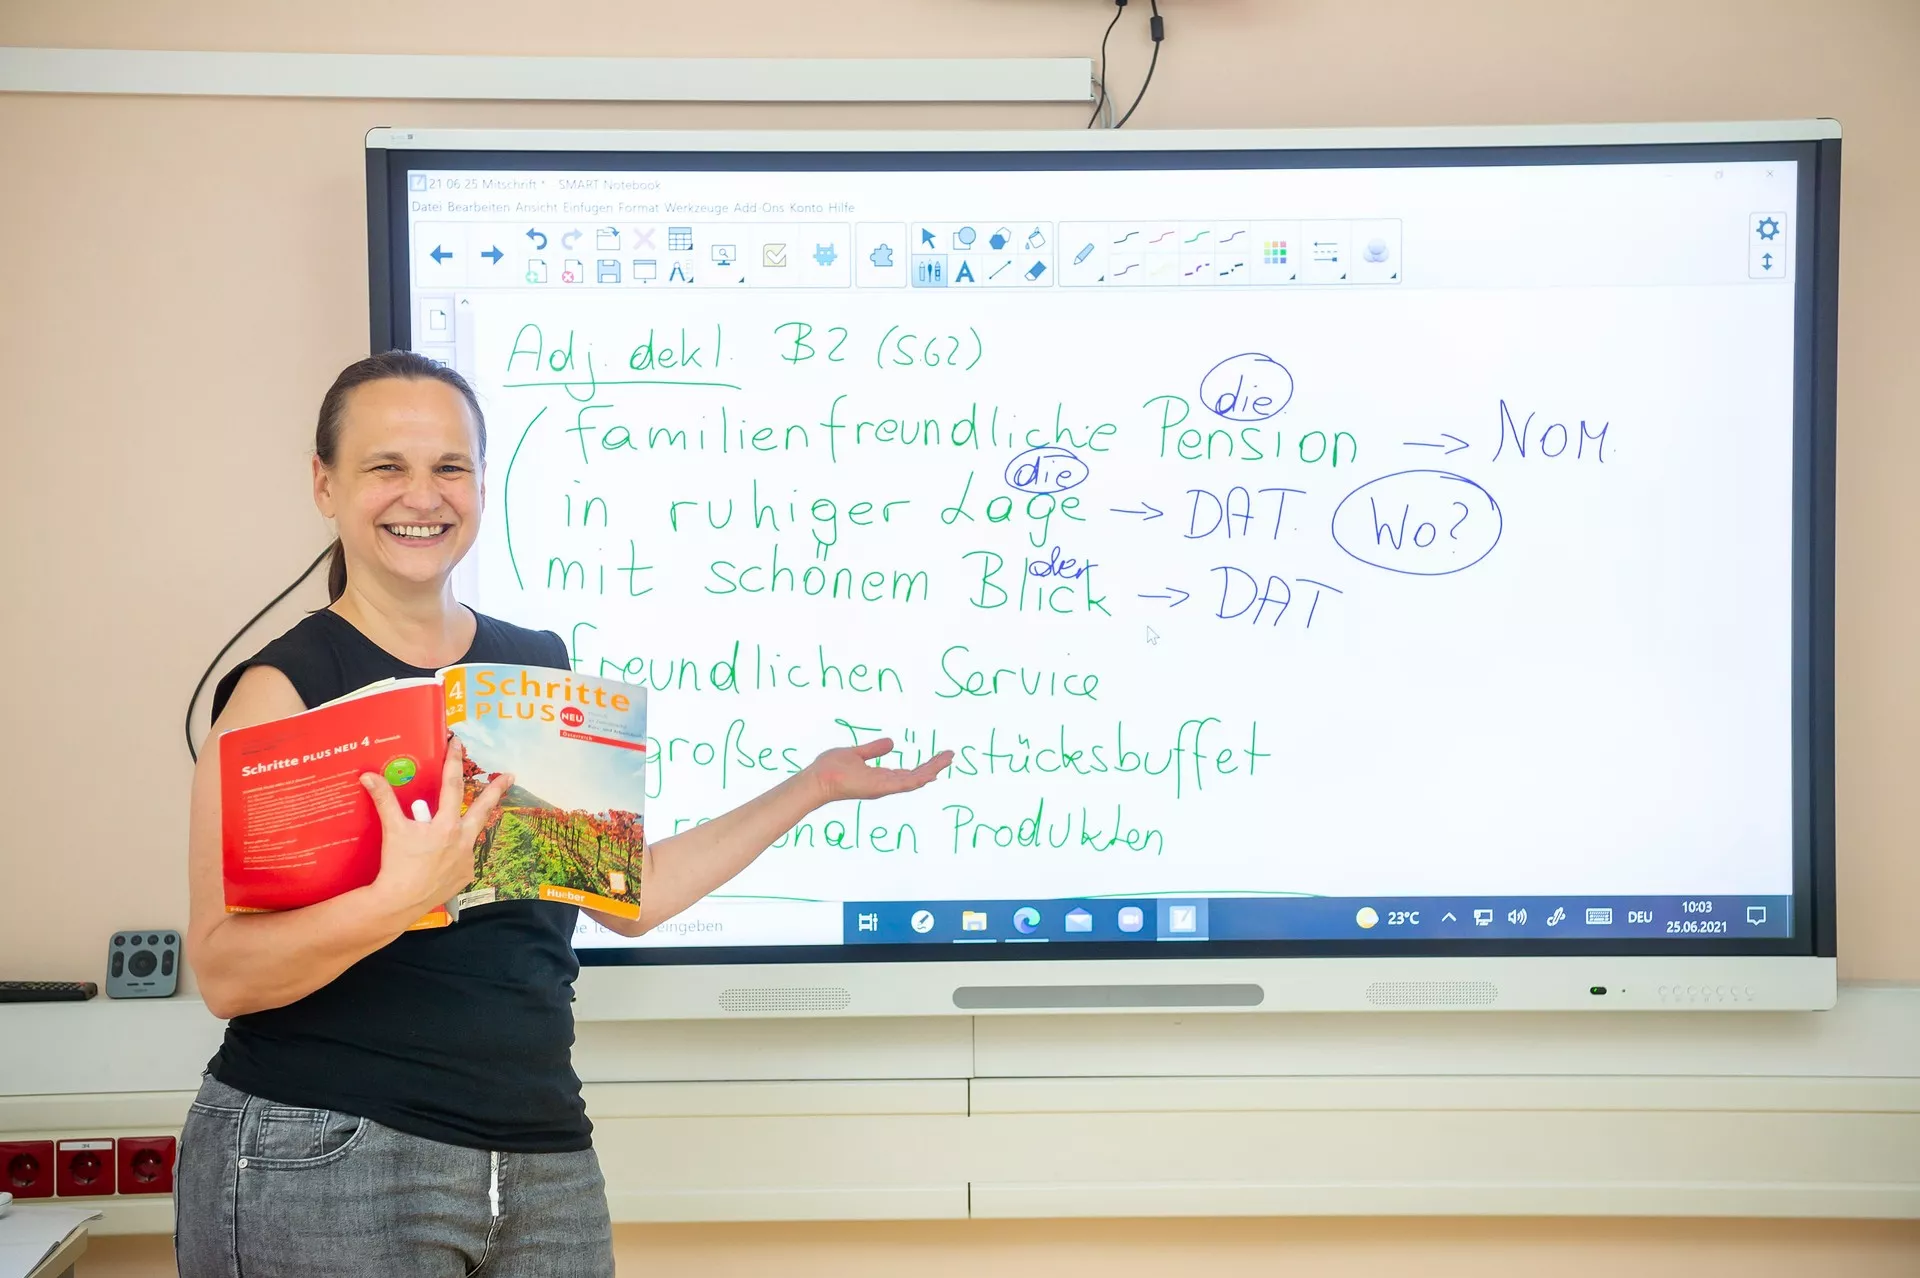 21 06 25 Mitschrift * SMART Notebook
Datei Bearbeiten Ansicht Einfügen Format Werkzeuge Add-Ons Konto Hilfe
Adj. dekl. B2 (S.62)
die
familienfreundliche Pension → NOM.
die
in ruhiger Lage → DAT. Wo?
der
mit schönem Blick → DAT
freundlichen Service
großes Frühstücksbuffet
Produkten
eingeben
23°C
DEU
10:03
25.06.2021
4
A2.2
Schritte
PLUS NEU
Österreich
Hueber
Schritte PLUS NEU 4 Österreich